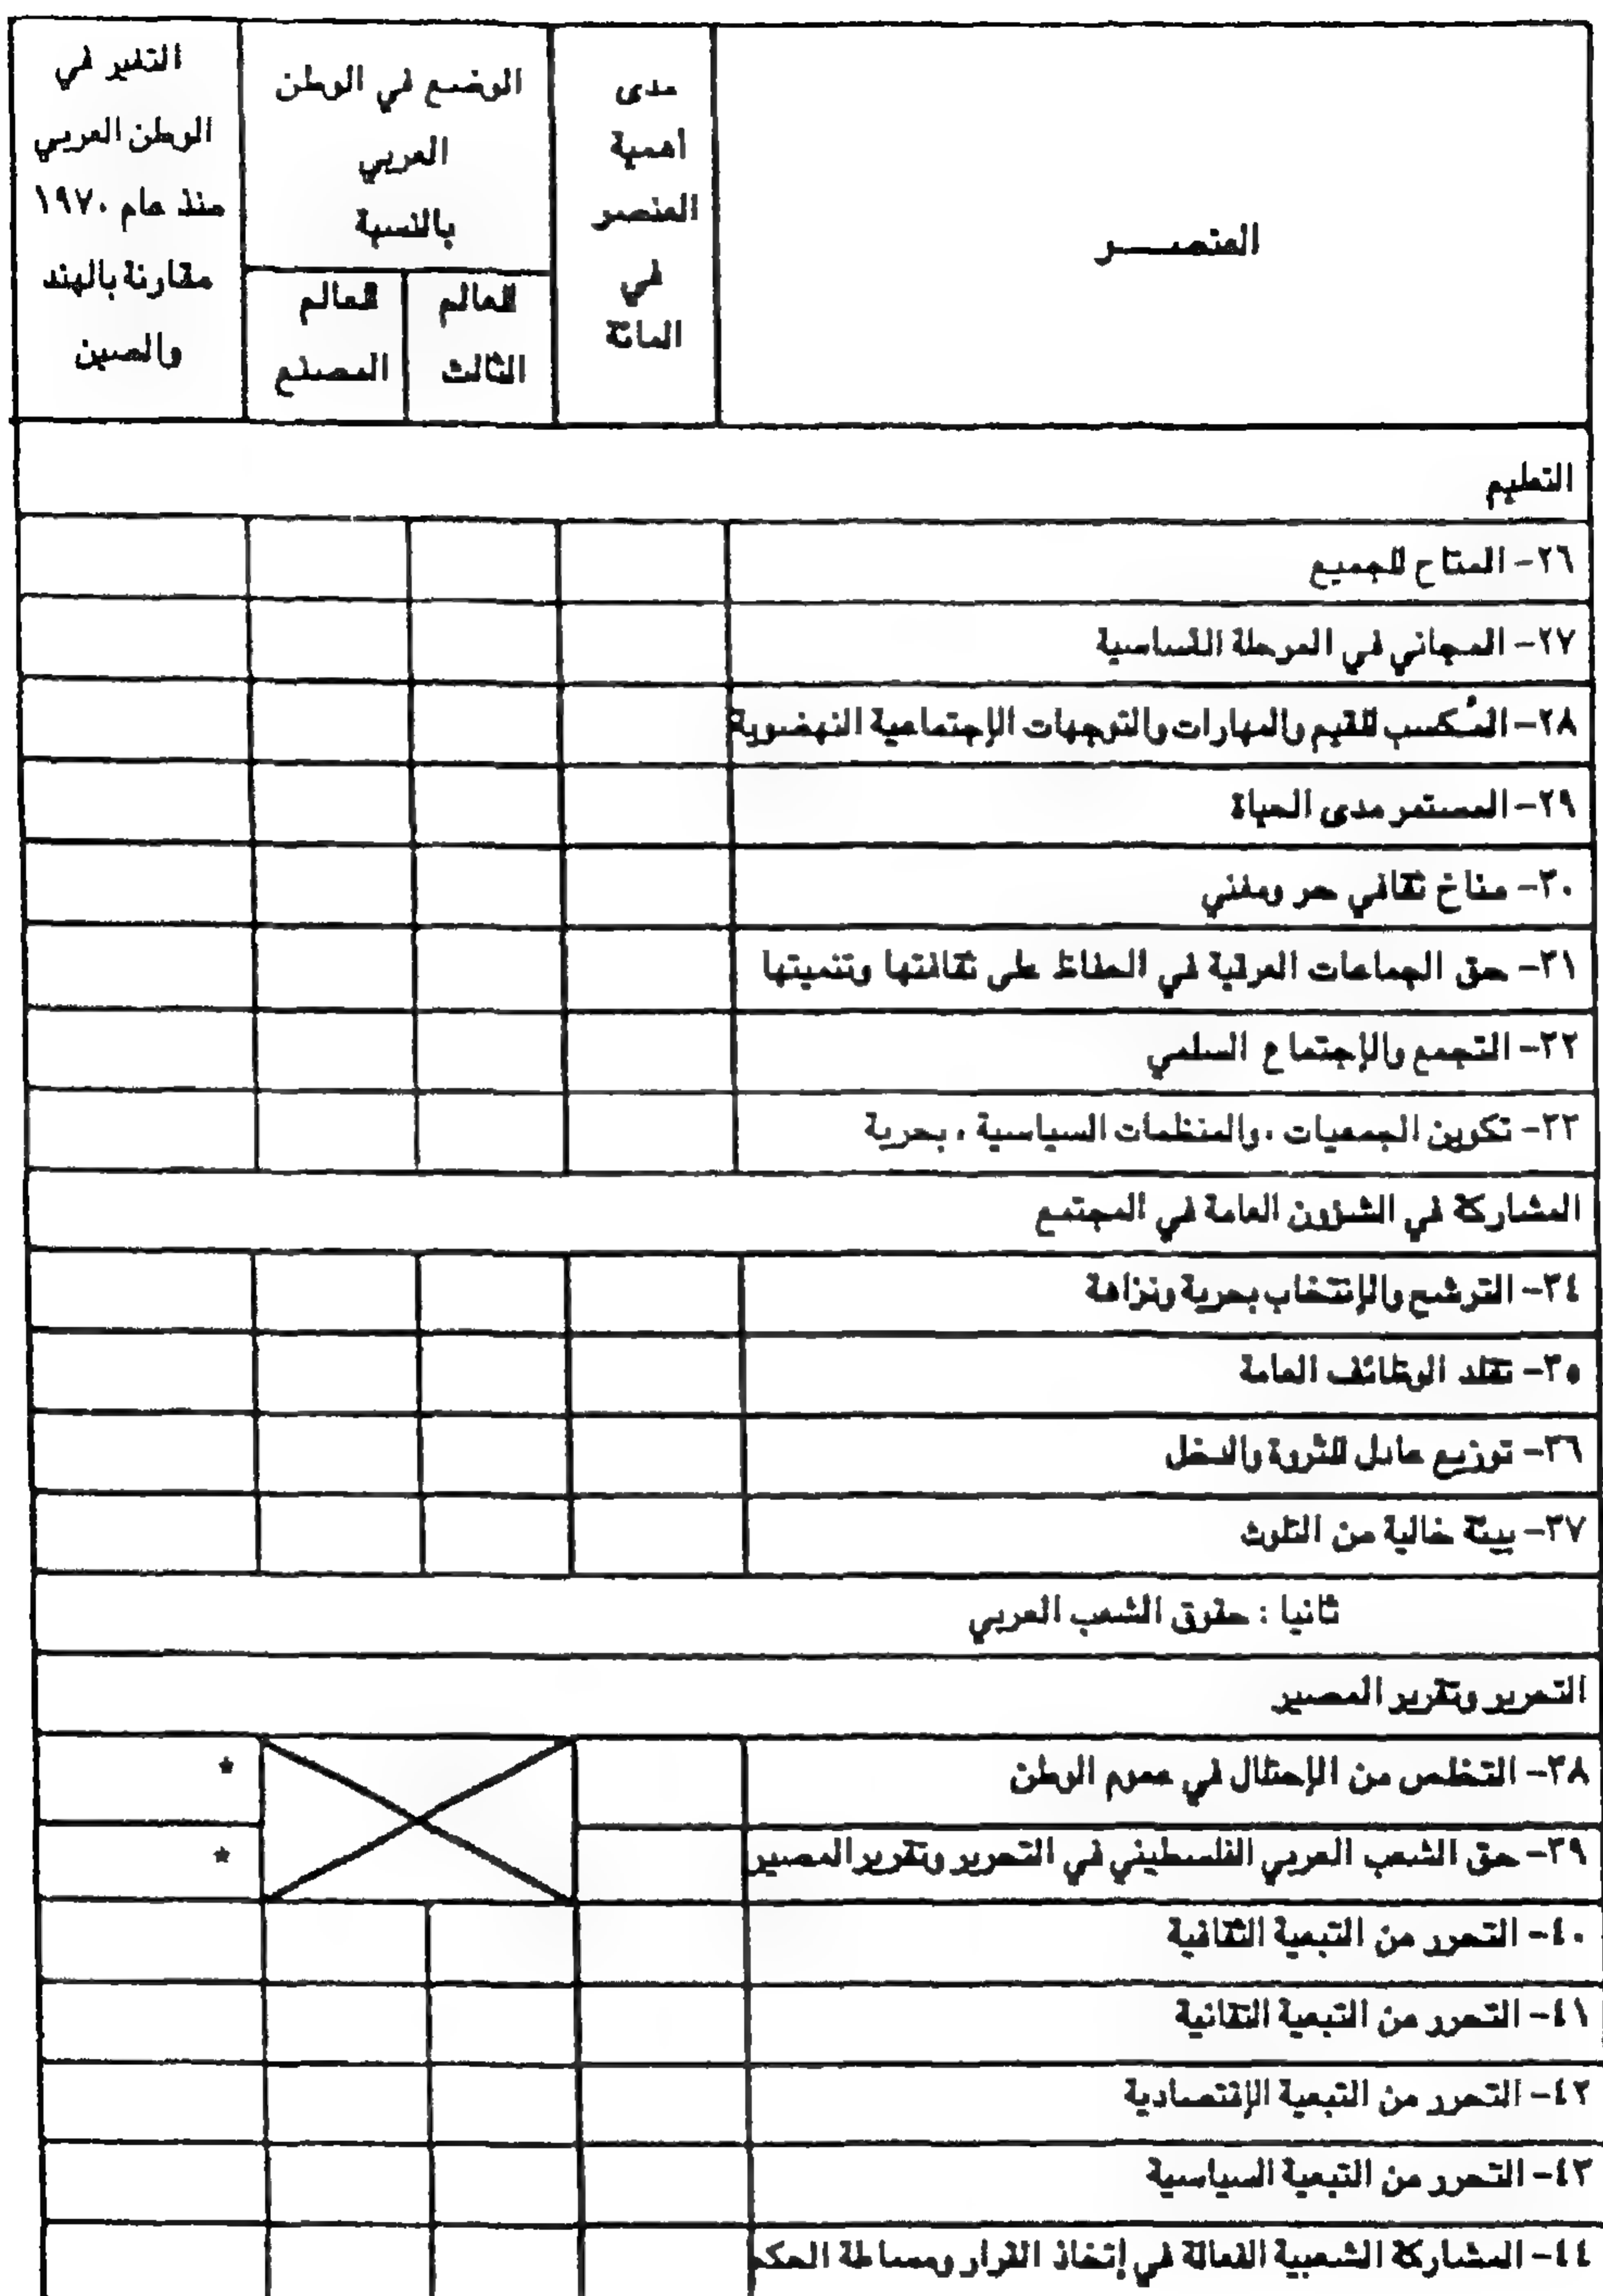 العنصــــر
مدى
أهمية
العنصر
في
المائة
الوضع في الوطن
العربي
بالنسبة
للعالم
الثالث
للعالم
المصنع
التغير في
الوطن العربي
منذ عام ١٩٧٠
مقارنة بالهند
والصين
التعليم
٢٦- المتاح للجميع
٢٧- المجاني في المرحلة الأساسية
٢٨- المُكسب للقيم والمهارات والتوجهات الإجتماعية النهضوية
٢٩- المستمر مدى الحياة
٣٠- مناخ ثقافي حر ومغني
٣١- حق الجماعات العرقية في الحفاظ على ثقافتها وتنميتها
٣٢- التجمع والإجتماع السلمي
٣٣- تكوين الجمعيات ، والمنظمات السياسية ، بحرية
المشاركة في الشؤون العامة في المجتمع
٣٤- الترشح والإنتخاب بحرية ونزاهة
٣٥- تقلد الوظائف العامة
٣٦- توزيع عادل للثروة والدخل
٣٧- بيئة خالية من التلوث
ثانيا : حقوق الشعب العربي
التحرير وتقرير المصير
٣٨- التخلص من الإحتلال في عموم الوطن *
٣٩- حق الشعب العربي الفلسطيني في التحرير وتقرير المصير *
٤٠- التحرر من التبعية الثقافية
٤١- التحرر من التبعية التقانية
٤٢- التحرر من التبعية الإقتصادية
٤٣- التحرر من التبعية السياسية
٤٤- المشاركة الشعبية الفعالة في إتخاذ القرار ومساءلة الحكم